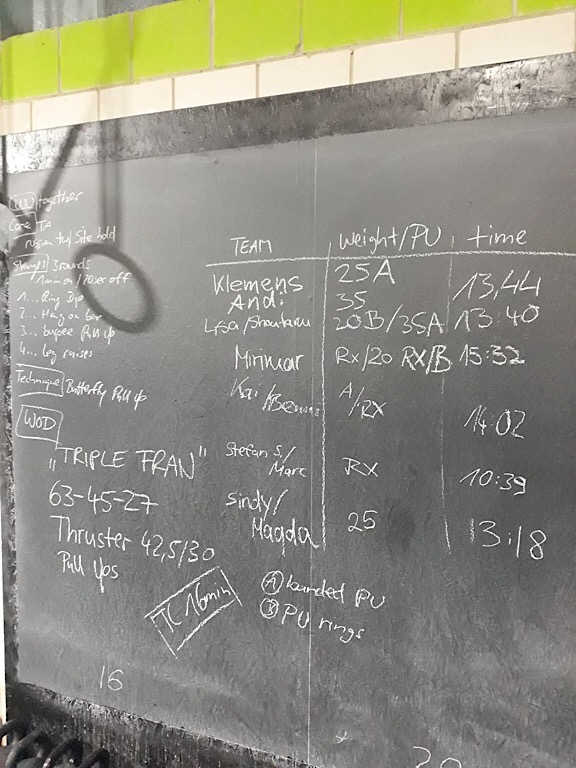 WU together
Core
Russian tw/ Side hold
Strength 3 rounds
1 min on / 20 sec off
1... Ring Dip
2... Hang on bar
3... burpee Pull up
4... Leg raises
Technique Butterfly Pull up
WOD
„TRIPLE FRAN"
63-45-27
Thruster 42,5/30
Pull ups
TC 16min
16
TEAM Weight/PU time
Klemens 25A 13,44
Andi 35
Lisa/ 20B/35A 13:40
Mirimar Rx/20 RX/B 15:32
Kai/ A/RX 14:02
Stefan S./
Marc RX 10:39
Sindy/
Magda 25 13:18
A banded PU
B PU rings